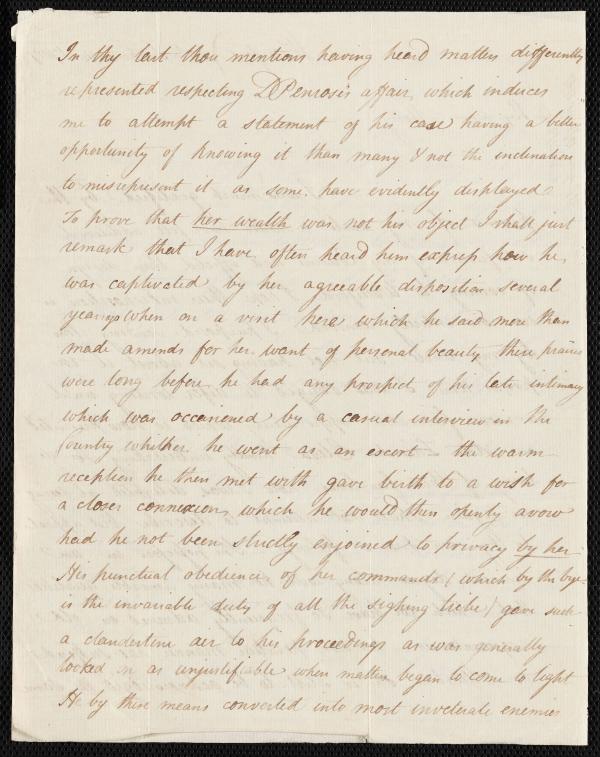 In thy last thou mentions having heard matters differently
represented respecting D Penrose's affair, which induces
me to attempt a statement of his case having a better
opportunity of knowing it than many & not the inclination
to misrepresent it as some have evidently displayed
To prove that her wealth was not his object I shall just
remark that I have often heard him express how he
was captivated by her agreeable disposition several
years ago when on a visit here which he said more than
made amends for her want of personal beauty these praises
were long before he had any prospect of his late intimacy
which was occasioned by a casual interview in the
Country whither he went as an escort - the warm
reception he then met with gave birth to a wish for
a closer connexion, which he would then openly avow
had he not been strictly enjoined to privacy by her
His punctual obedience of her commands (which by the bye
is the invariable duty of all the sighing tribe) gave such
a clandestine air to his proceedings as was generally
looked on as unjustifiable when matters began to come to light
He by these means converted into most inveterate enemies